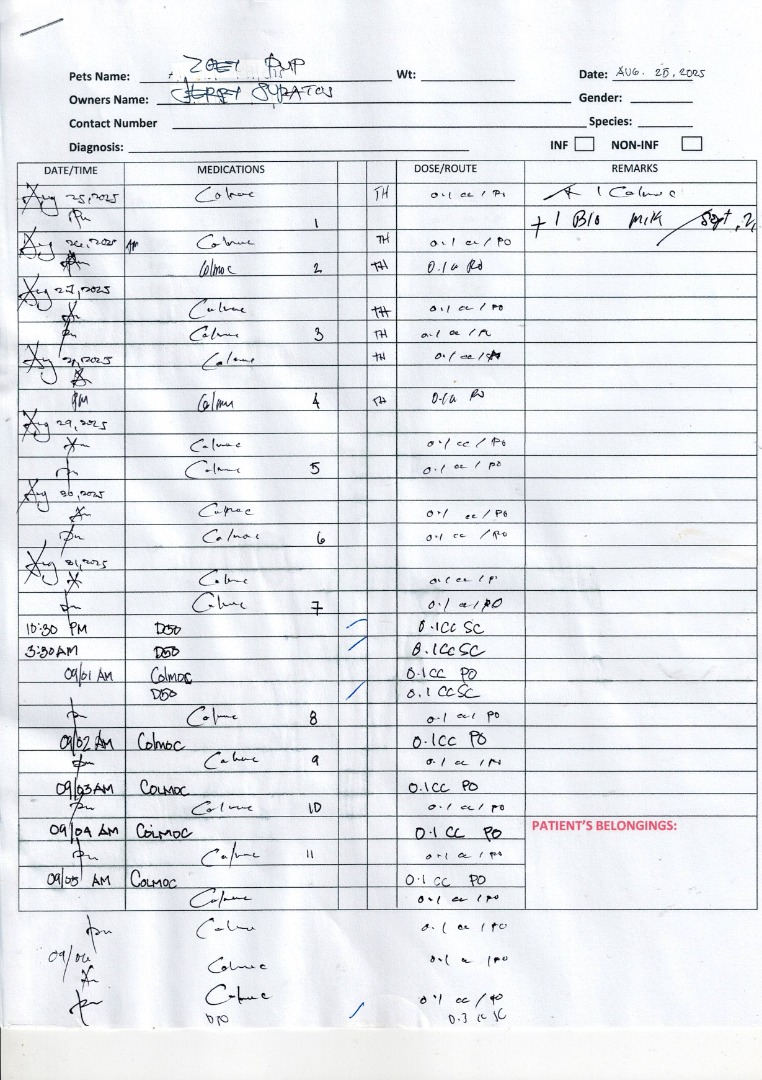 Pets Name: ZOEY PUP Wt: Date: AUG. 25, 2025
Owners Name: Gender:
Contact Number Species:
Diagnosis: INF NON-INF
DATE/TIME MEDICATIONS DOSE/ROUTE REMARKS
Aug 25, 2025 Colmoc TH 0.1 cc / PO + 1 Colmoc
Pm 1 + 1 Bio milk Sept. 2,
Aug 26, 2025 AM Colmoc TH 0.1 cc / PO
Colmoc 2 TH 0.1 cc PO
Aug 27, 2025
Am Colmoc TH 0.1 cc / PO
Pm Colmoc 3 TH 0.1 cc / PO
Aug 28, 2025 Colmoc TH 0.1 cc / PO
Am
PM Colmoc 4 TH 0.1 cc PO
Aug 29, 2025
Am Colmoc 0.1 cc / PO
pm Colmoc 5 0.1 cc / PO
Aug 30, 2025
Am Colmoc 0.1 cc / PO
Pm Colmoc 6 0.1 cc / PO
Aug 31, 2025
Am Colmoc 0.1 cc / P
pm Colmoc 7 0.1 cc / PO
10:30 PM D50 0.1CC SC
3:30 AM D50 0.1CC SC
09/01 AM Colmoc 0.1CC PO
D50 0.1 CC SC
pm Colmoc 8 0.1 cc / PO
09/02 AM Colmoc 0.1CC PO
pm Colmoc 9 0.1 cc / PO
09/03 AM COLMOC 0.1CC PO
pm Colmoc 10 0.1 cc / PO
09/04 AM COLMOC 0.1 CC PO PATIENT'S BELONGINGS:
pm Colmoc 11 0.1 cc / PO
09/05 AM COLMOC 0.1 CC PO
Colmoc 0.1 cc / PO
pm Colmoc 0.1 cc / PO
09/06
Am Colmoc 0.1 cc / PO
pm Colmoc 0.1 cc / PO
0.3 cc SC